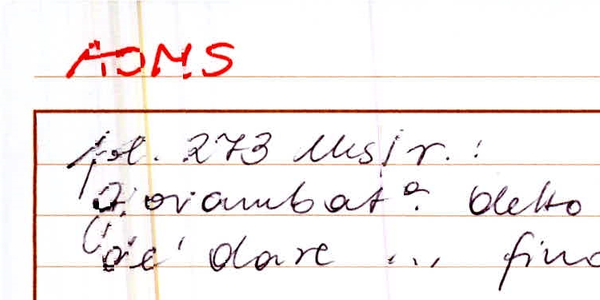 ADMS
fol. 273 Ms/r. :
Giovambatª detto
de' dare ... fino